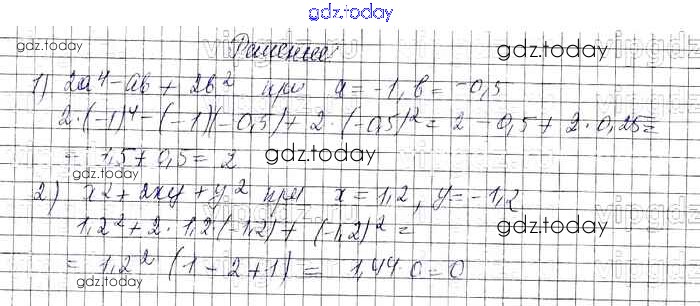 gdz.today
gdz.today
Решение
gdz.today
1) 2a⁴ - ab + 2b² при a = -1, b = -0,5
2·(-1)⁴ - (-1)(-0,5) + 2·(-0,5)² = 2 - 0,5 + 2·0,25 =
= 1,5 + 0,5 = 2
gdz.today
2) x² + 2xy + y² при x = 1,2, y = -1,2
1,2² + 2·1,2·(-1,2) + (-1,2)² =
gdz.today
= 1,2² (1 - 2 + 1) = 1,44·0 = 0
gdz.today